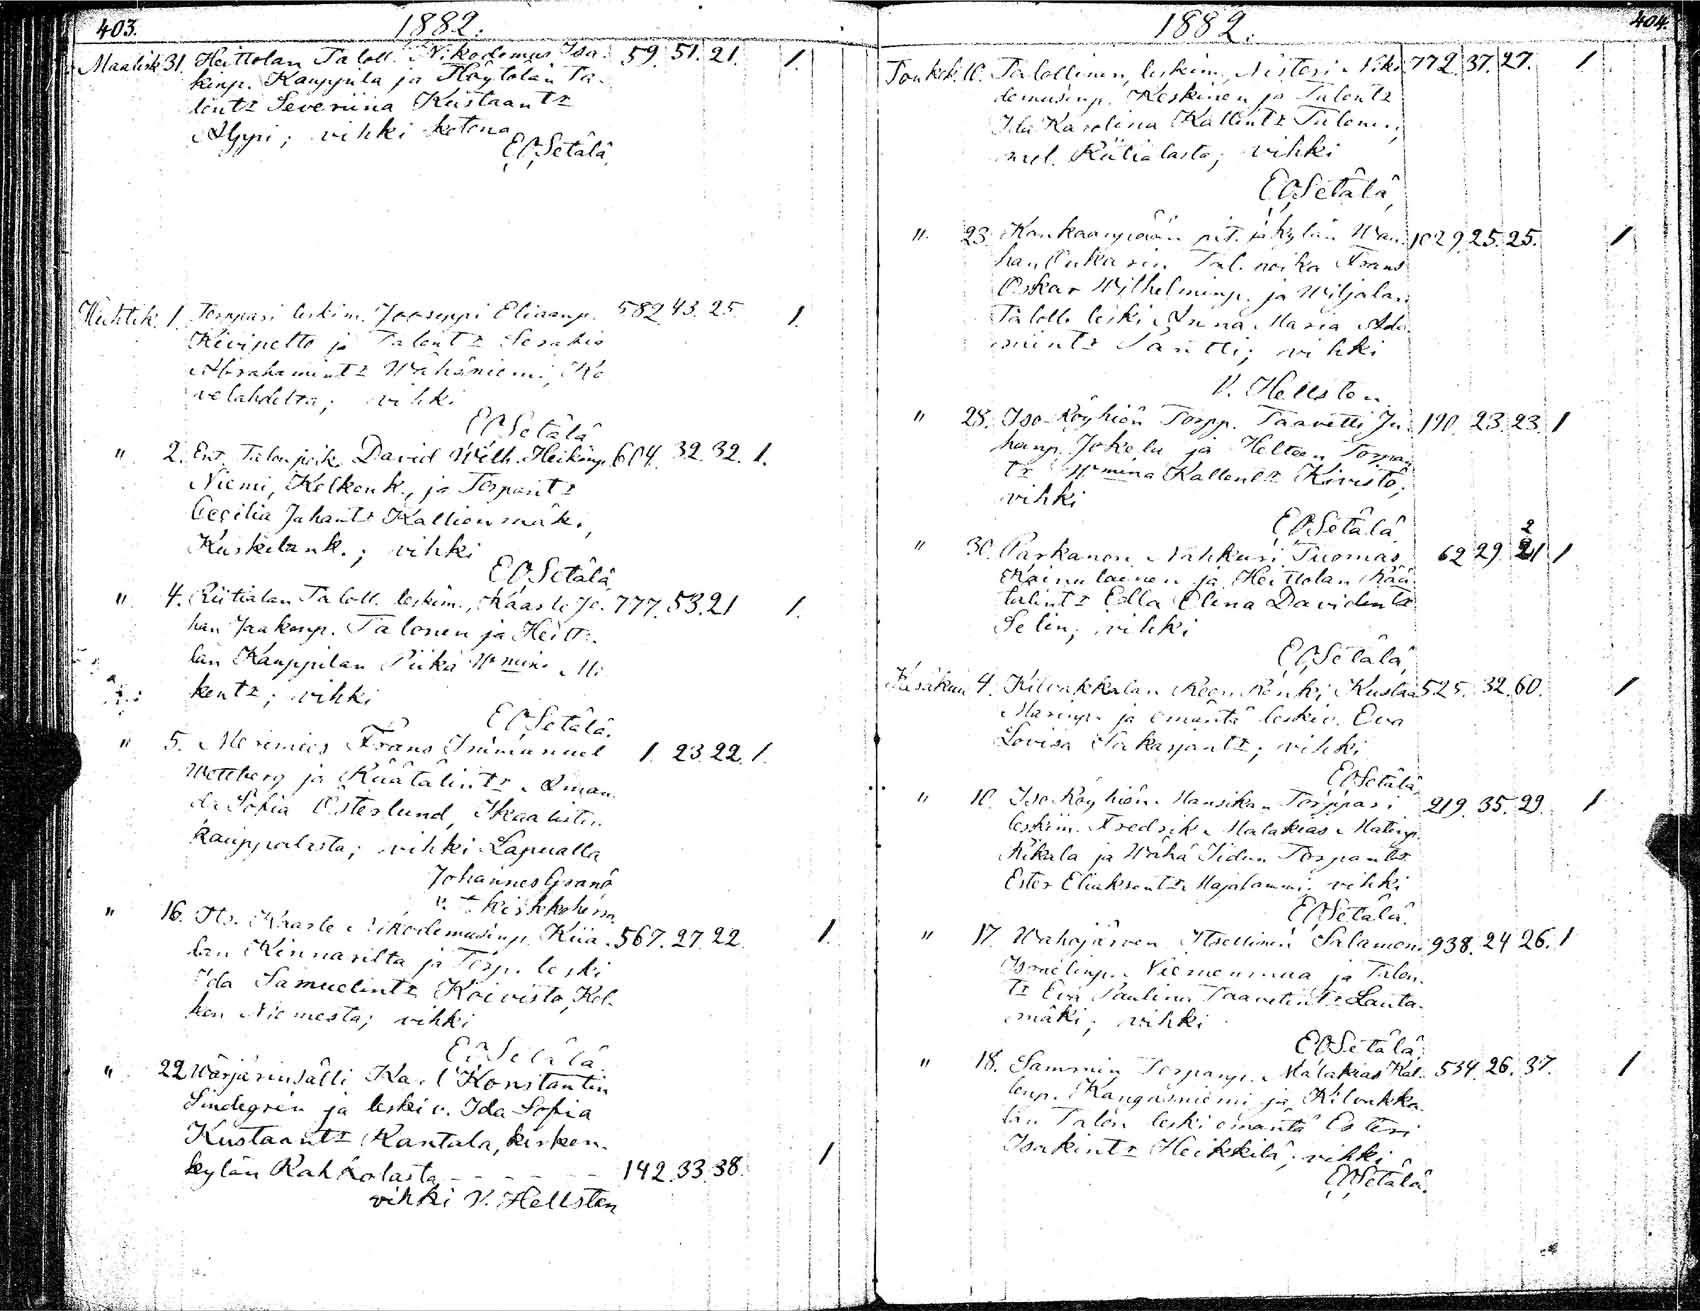 403.
1882.
Maalisk 31. Heittolan Taloll. Nikodemus Isa- 59. 51. 21. 1.
kinp. Kauppila ja Höytölän Ta-
lontr Severiina Kustaantr
Alppi; vihki kotona
E O Setälä,
Huhtik. 1. Torppari leskim. Jooseppi Eliaanp. 582. 43. 25. 1.
Kivipelto ja Talontr Serahia
Abrahamintr Wähäniemi, Ko
velahdelta; vihki
E O Setälä
" 2. Ent. Talon poik. David Wilh. Heikinp. 604. 32. 32. 1.
Niemi, Kelkonk., ja Torparitr
Cecilia Juhantr Kallionmäki,
Kuskilank.; vihki
E O Setälä
" 4. Riitialan Taloll. leskim., Kaarle Jo- 777. 53. 21 1.
han Jaakonp. Talonen ja Heitto-
lan Kauppilan Piika Wmina Mi
kentr; vihki
E O Setälä.
" 5. Merimies Frans Immanuel 1. 23. 22. 1.
Wettberg ja Räätälintr Aman-
da Sofia Österlund, Ikaalisten
kauppalasta; vihki Lapualla
Johannes Granö
v. t. kirkkoherra
" 16. Its. Kaarle Nikodemusinp. Riia- 567. 27. 22. 1.
lan Kinnarilta ja Torp. leski
Ida Samuelintr Koivisto, Kel-
kon Niemestä; vihki
E O Setälä.
" 22 Wärjärinsälli Karl Konstantin
Lindegrén ja leskiv. Ida Sofia
Kustaantr Rantala, kirkon-
kylän Rahkolasta 142. 33. 38. 1
vihki V. Hellsten
1882.
404.
Toukok. 10. Talollinen, leskim. Nestori Niko 772. 37. 27. 1
demusinp. Keskinen ja Talontr
Ida Karolina Kallentr Talonen,
mol. Riitialasta; vihki
E O Setälä,
" 23. Kankaanpään pit. ja kylän Wan- 1029. 25. 25. 1
han Tal. poika Frans
Oskar Wilhelminp. ja Wiljalan
Taloll. leski Anna Maria Ada
mintr Santti; vihki
V. Hellsten
" 28. Iso-Röyhiön Torpp. Taavetti Ju- 190. 23. 23. 1
hanp. Jokela ja Heltoon Torpan
tr Wmina Kallentr Kivistö;
vihki
E O Setälä.
2
" 30. Parkanon Nahkuri Tuomas 62 29. 21. 1
Kainulainen ja Heittolan Rää-
talintr Edla Elina Davidintr
Selin; vihki
E O Setälä
Kesäkuu 4. Kilvakkalan Renki Kustaa 525. 32. 60. 1
ja emäntä leskiv. Eva
Lovisa Sakarjantr; vihki
E O Setälä
" 10. Iso Röyhiön Mansikan Torppari 219. 35. 29. 1
leskim. Fredrik Malakias Matinp.
Rikala ja Wähä Torpantr
Ester Eliaksentr Majalammi; vihki
E O Setälä.
" 17. Wahojärven Itsellinen Salamoni 938. 24 26. 1
Ismelinp. Niemenmaa ja Talon-
tr Eva Paulina Taavetintr Lauta-
mäki; vihki
E O Setälä.
" 18. Sammin Torpanp. Malakias Kal- 534. 26. 37. 1
lenp. Kangasniemi ja Kilvakka-
lan Talon leski emäntä Esteri
Isakintr Heikkilä; vihki
E O Setälä.